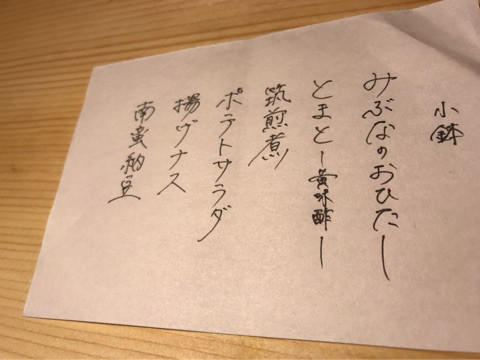 小鉢
みぶなのおひたし
とまとー黄味酢ー
筑前煮
ポテトサラダ
揚ゲナス
南蛮納豆